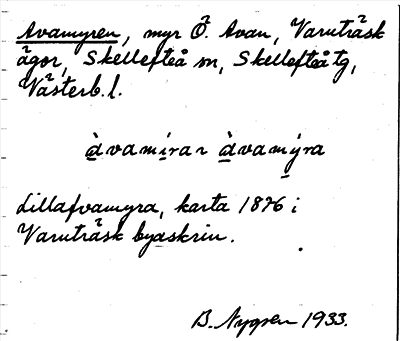 Avamyren, myr Ö. Avan, Varuträsk
ägor, Skellefteå sn, Skellefteå tg,
Västerb. l.
àvamíran àvamýra
Lillafvamyra, karta 1876 i
Varuträsk byaskrin.
B. Nygren 1933.